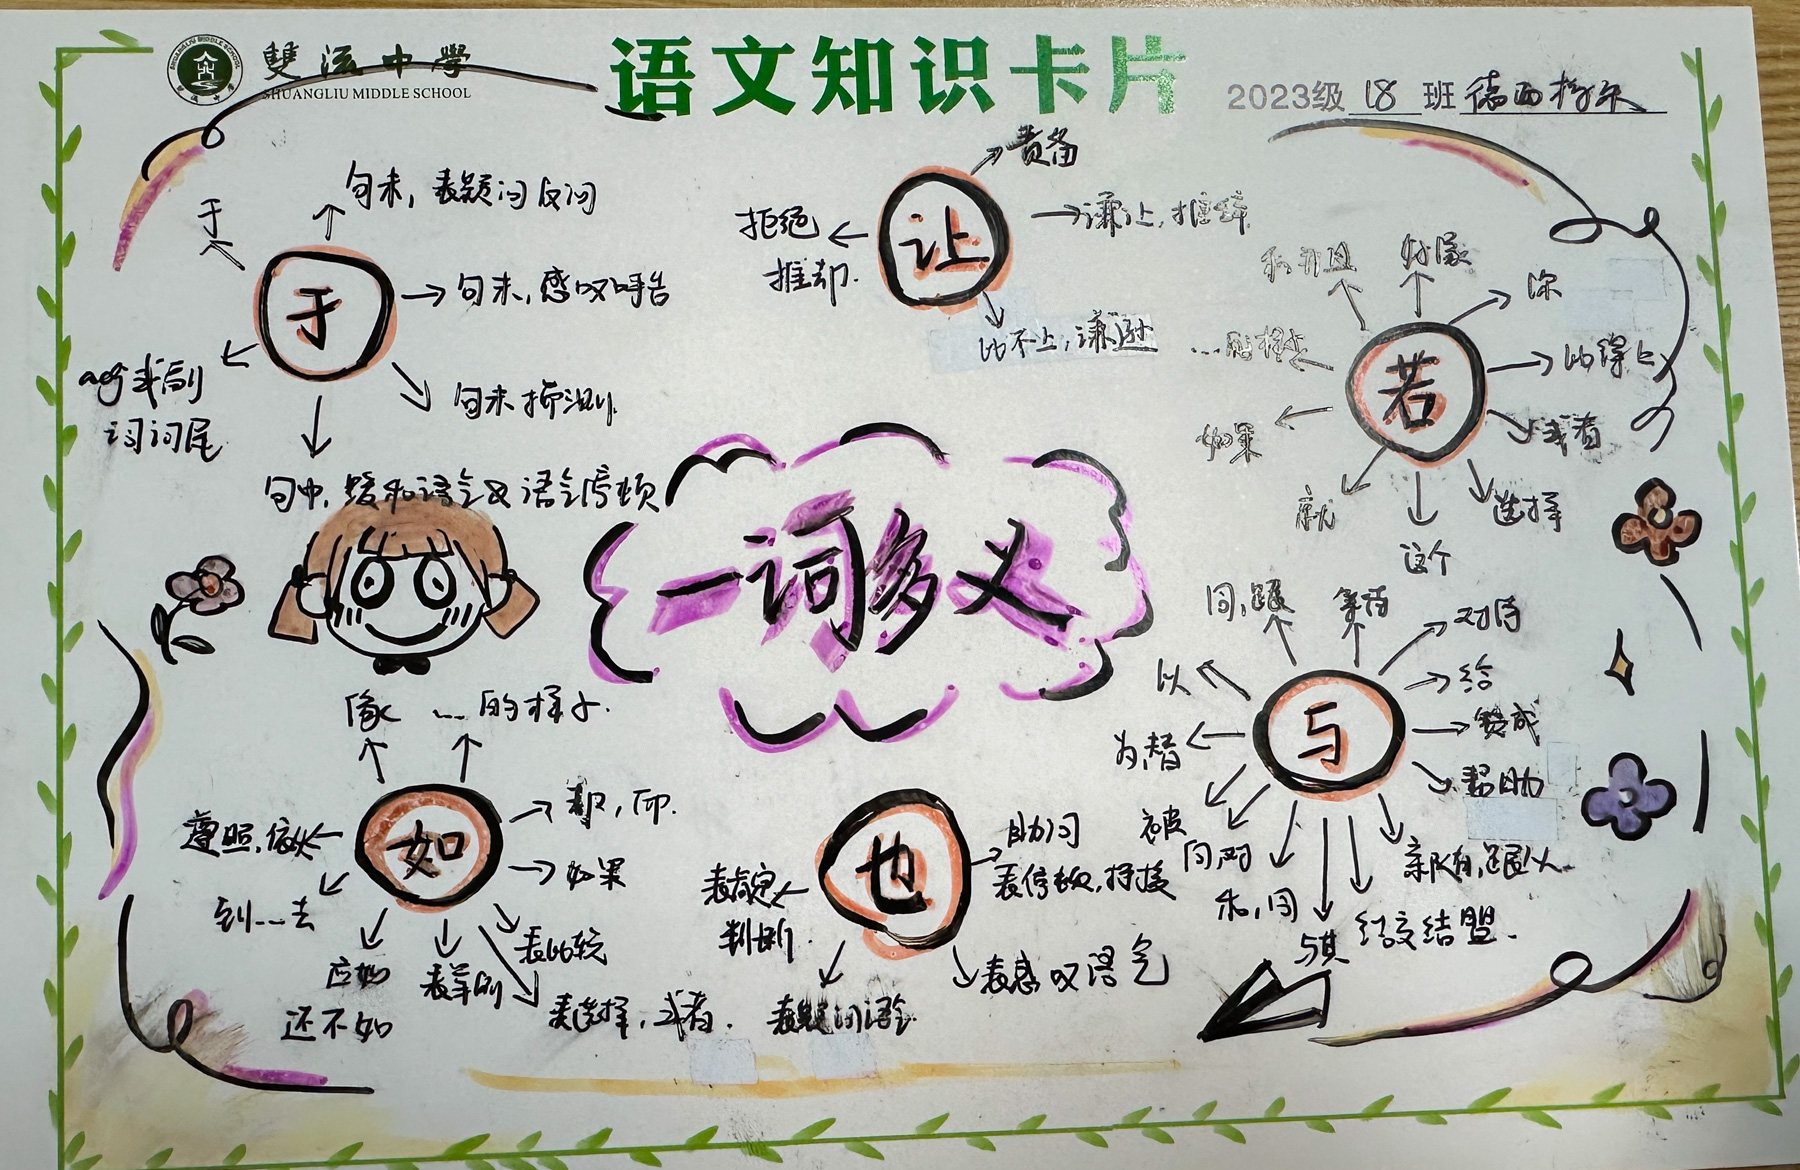 雙流中學
SHUANGLIU MIDDLE SCHOOL
语文知识卡片
2023级 18 班 德西梅朵
于
句末，表疑问反问
于
句末，感叹呼告
句末揣测
句中，缓和语气及语气停顿
adj或副
词词尾
让
责备
谦让，推辞
比不上，谦逊
拒绝
推却.
若
和并且
好像
你
比得上
或者
选择
这个
就
如果
一词多义
与
同，跟
等待
对待
给
赞成
帮助
亲附，跟从
结交结盟.
与其
和，同
向，对
被
为，替
以
如
像
...的样子.
表, 而.
如果
表比较
表选择，或者.
表举例
应如
还不如
到...去
遵照，依从
也
助词
表停顿，抒缓
表感叹语气
表疑问语气
表肯定
判断.